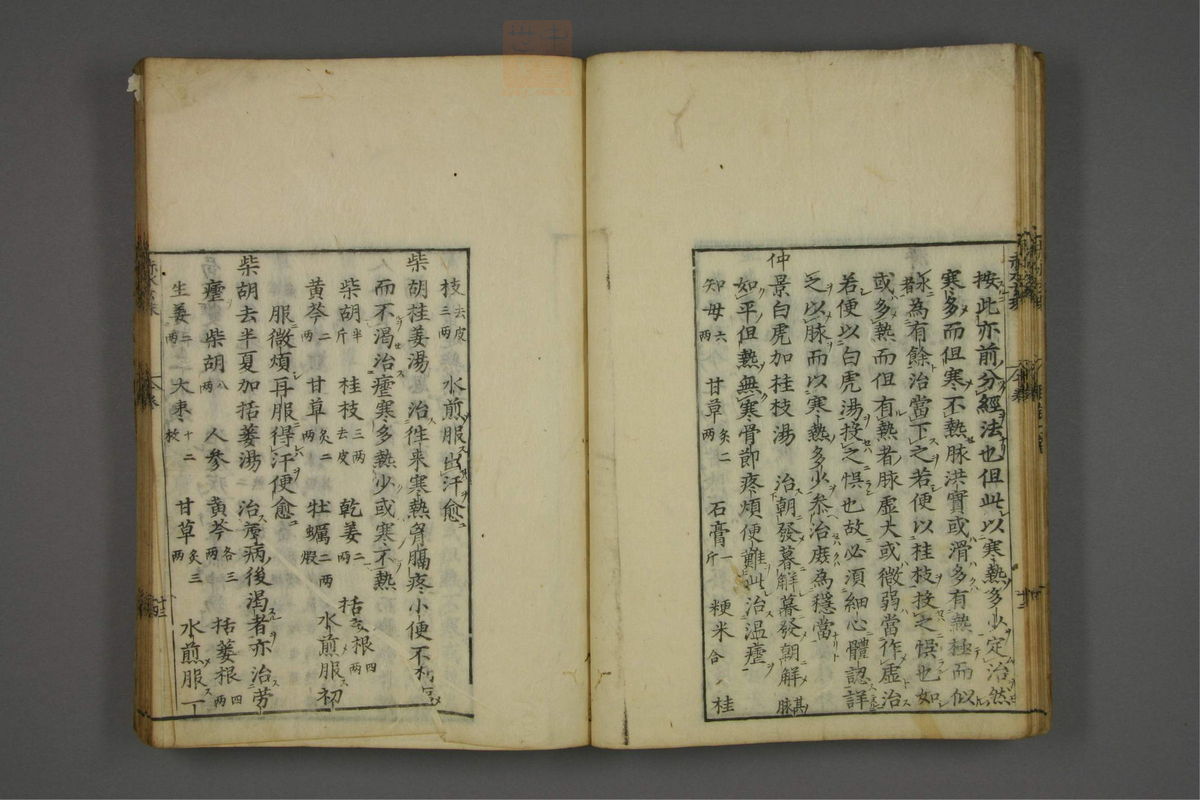 按此亦前分經法也但此以寒熱多少定治然
寒多而但寒不熱脉洪實或滑多有熱極而似
氷者為有餘治當下之若便以桂枝投之悞也如
或多熱而但有熱者脉虛大或微弱當作虛治
若便以白虎湯投之悞也故必須細心體認詳
之以脉而以寒熱多少參治庶為穩當
仲景白虎加桂枝湯 治朝發暮解暮發朝解脉
如平但熱無寒骨節疼煩便難此治温瘧
知母六兩 甘草炙二兩 石膏一斤 粳米八合 桂
枝去皮三兩 水煎服出汗愈
柴胡桂姜湯 治徃来寒熱胷膈疼小便不利
而不渴治瘧寒多熱少或寒不熱
柴胡半斤 桂枝三兩去皮 乾姜二兩 栝蔞根四兩
黄芩二兩 甘草炙二兩 牡蠣二兩煆 水煎服初
服微煩再服得汗便愈
柴胡去半夏加栝蔞湯 治瘧病後渴者亦治劳
瘧 柴胡八兩 人参 黄芩各三兩 栝蔞根四兩
生姜二兩 大棗十二枚 甘草炙三兩 水煎服一